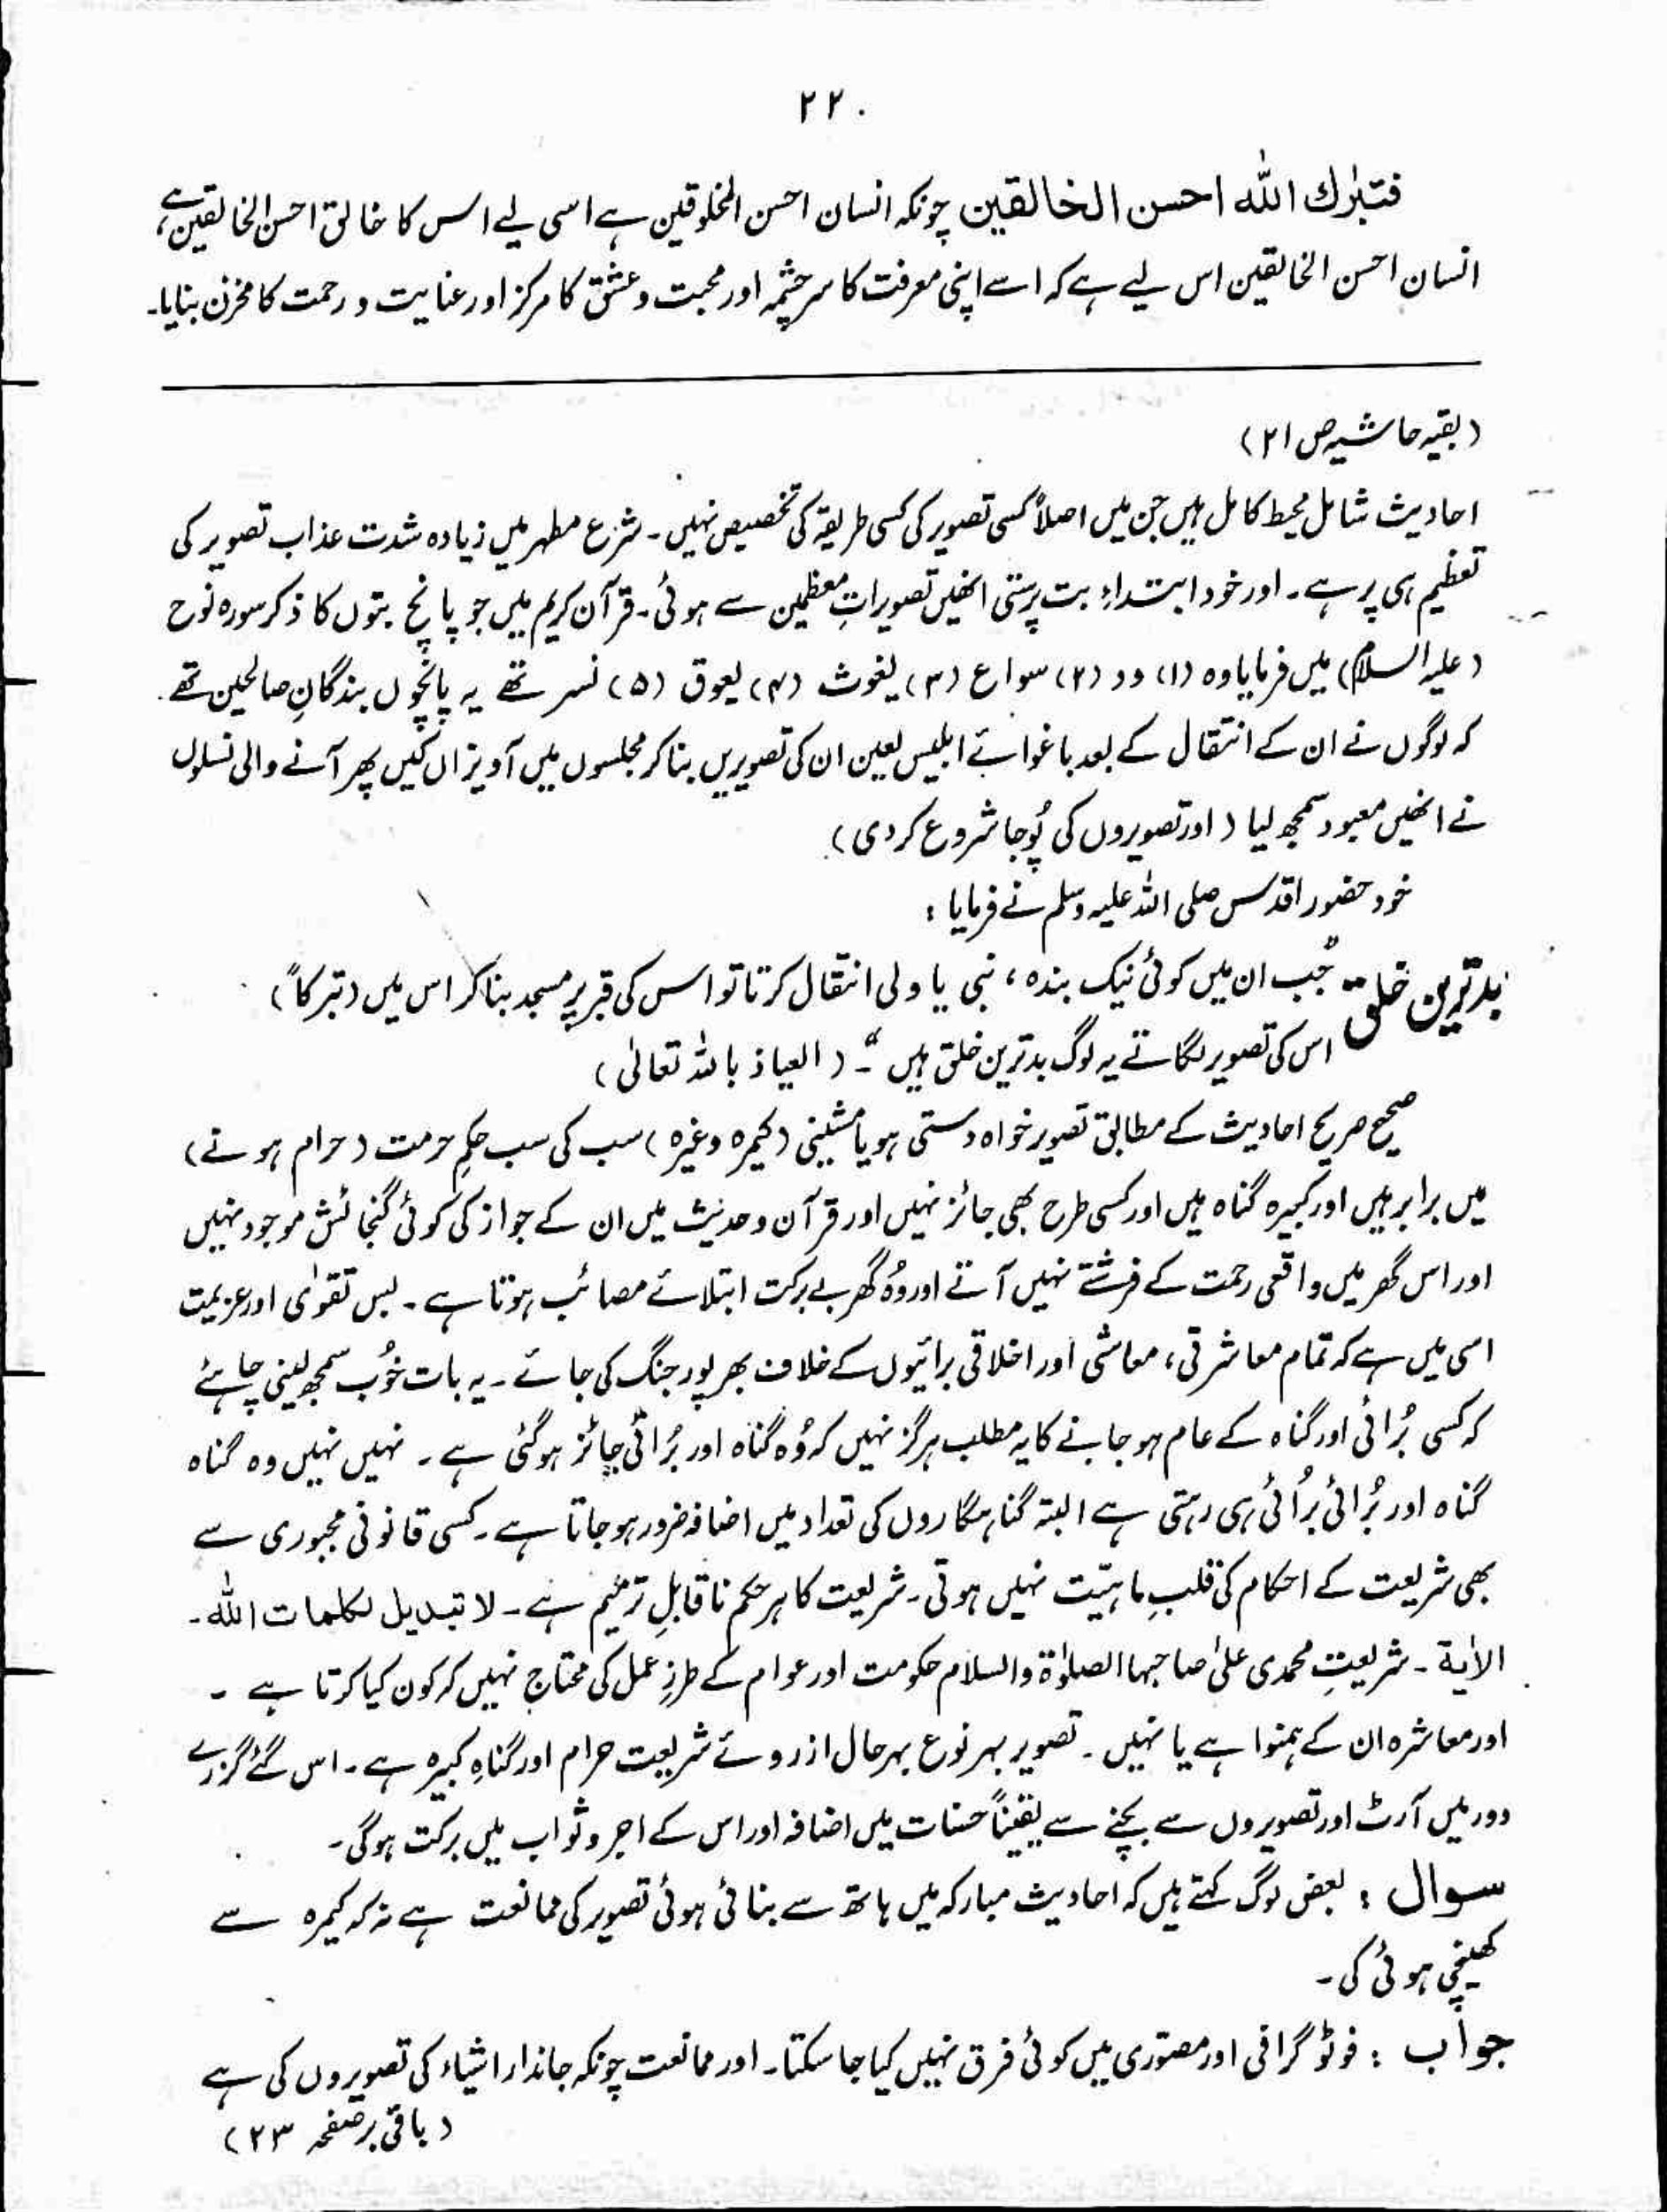 ۲۲۰
فتبٰرك الله احسن الخالقین چونکہ انسان احسن المخلوقین ہے اسی لیے اس کا خالق احسن الخالقین ہے،
انسان احسن الخالقین اس لیے ہے کہ اسے اپنی معرفت کا سرچشمہ اور محبت و عشق کا مرکز اور عنایت و رحمت کا مخزن بنایا۔
(بقیہ حاشیہ ص ۲۱)
احادیث شامل محیط کامل ہیں جن میں اصلاً کسی تصویر کی کسی طریقہ کی تخصیص نہیں۔ شرع مطہر میں زیادہ شدت عذاب تصویر کی
تعظیم ہی پر ہے۔ اور خود ابتداءِ بت پرستی انھیں تصویراتِ معظمین سے ہوئی۔ قرآن کریم میں جو پانچ بتوں کا ذکر سورہ نوح
(علیہ السلام) میں فرمایا وہ (۱) ود (۲) سواع (۳) یغوث (۴) یعوق (۵) نسر تھے یہ پانچوں بندگانِ صالحین تھے۔
کہ لوگوں نے ان کے انتقال کے بعد باغوائے ابلیس لعین ان کی تصویریں بنا کر مجلسوں میں آویزاں کیں پھر آنے والی نسلوں
نے انھیں معبود سمجھ لیا (اور تصویروں کی پُوجا شروع کر دی)۔
خود حضور اقدس صلی اللہ علیہ وسلم نے فرمایا :
بدترین خلق "جب ان میں کوئی نیک بندہ، نبی یا ولی انتقال کرتا تو اس کی قبر پر مسجد بنا کر اس میں (تبرکاً)
اس کی تصویر لگاتے یہ لوگ بدترین خلق ہیں"۔ (العیاذ باللہ تعالیٰ)
صحیح صریح احادیث کے مطابق تصویر خواہ دستی ہو یا مشینی (کیمرہ وغیرہ) سب کی سب حکمِ حرمت (حرام ہونے)
میں برابر ہیں اور کبیرہ گناہ ہیں اور کسی طرح بھی جائز نہیں اور قرآن و حدیث میں ان کے جواز کی کوئی گنجائش موجود نہیں
اور اس گھر میں واقعی رحمت کے فرشتے نہیں آتے اور وُہ گھر بے برکت ابتلائے مصائب ہوتا ہے۔ بس تقوٰی اور عزیمت
اسی میں ہے کہ تمام معاشرتی، معاشی اور اخلاقی برائیوں کے خلاف بھرپور جنگ کی جائے۔ یہ بات خُوب سمجھ لینی چاہئے
کہ کسی بُرائی اور گناہ کے عام ہو جانے کا یہ مطلب ہرگز نہیں کہ وُہ گناہ اور بُرائی جائز ہو گئی ہے۔ نہیں نہیں وہ گناہ
گناہ اور بُرائی بُرائی ہی رہتی ہے البتہ گناہگاروں کی تعداد میں اضافہ ضرور ہو جاتا ہے۔ کسی قانونی مجبوری سے
بھی شریعت کے احکام کی قلبِ ماہیّت نہیں ہوتی۔ شریعت کا ہر حکم ناقابلِ ترمیم ہے۔ لا تبدیل لکلمات اللہ۔
الاٰیة۔ شریعتِ محمدی علیٰ صاحبہا الصلوٰۃ والسلام حکومت اور عوام کے طرزِ عمل کی محتاج نہیں کہ کون کیا کرتا ہے ۔
اور معاشرہ ان کے ہمنوا ہے یا نہیں۔ تصویر بہر نوع بہرحال ازروئے شریعت حرام اور گناہِ کبیرہ ہے۔ اس گئے گزرے
دور میں آرٹ اور تصویروں سے بچنے سے یقیناً حسنات میں اضافہ اور اس کے اجر و ثواب میں برکت ہوگی۔
سوال : بعض لوگ کہتے ہیں کہ احادیث مبارکہ میں ہاتھ سے بنائی ہوئی تصویر کی ممانعت ہے نہ کہ کیمرہ سے
کھینچی ہوئی کی۔
جواب : فوٹوگرافی اور مصوّری میں کوئی فرق نہیں کیا جا سکتا۔ اور ممانعت چونکہ جاندار اشیاء کی تصویروں کی ہے
(باقی بر صفحہ ۲۳)